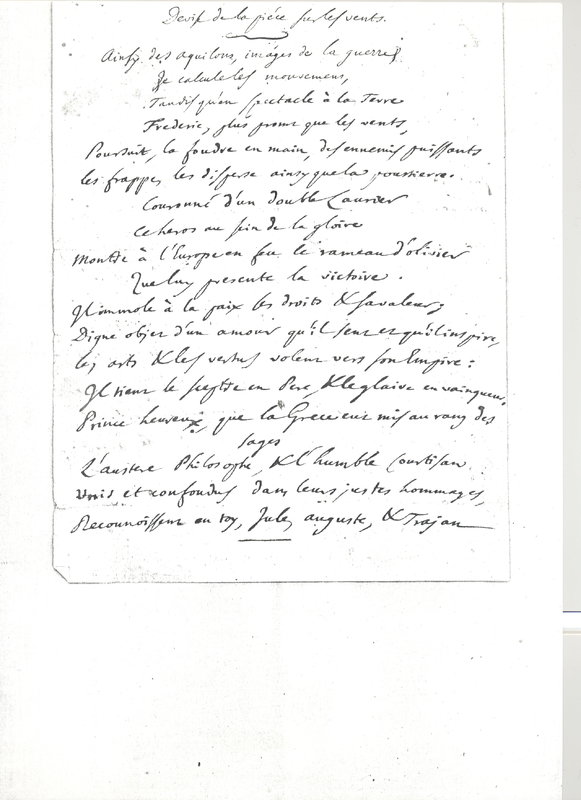 Devise de la piéce sur les vents.
Ainsy des aquilons, images de la guerre,
Je calcule les mouvemens,
Tandis qu'en spectacle à la Terre
Frederic, plus promt que les vents,
Poursuit, la foudre en main, des ennemis puissants
les frappe, les disperse ainsy que la poussierre.
Couronné d'un double Laurier
ce heros au sein de la gloire
Montre à l'Europe en feu le rameau d'olivier
Que luy presente la victoire.
Il immole à la paix les droits & sa valeur;
Digne objet d'un amour qu'il sent et qu'il inspire,
les arts & les vertus volent vers son Empire:
Il tient le sceptre en Pere, & le glaive en vainqueur,
Prince heureux, que la Grece eut mis au rang des
sages
L'austere Philosophe, & l'humble Courtisan
Unis et confondus dans leurs justes hommages,
Reconnoissent en toy, Jule, auguste, & Trajan